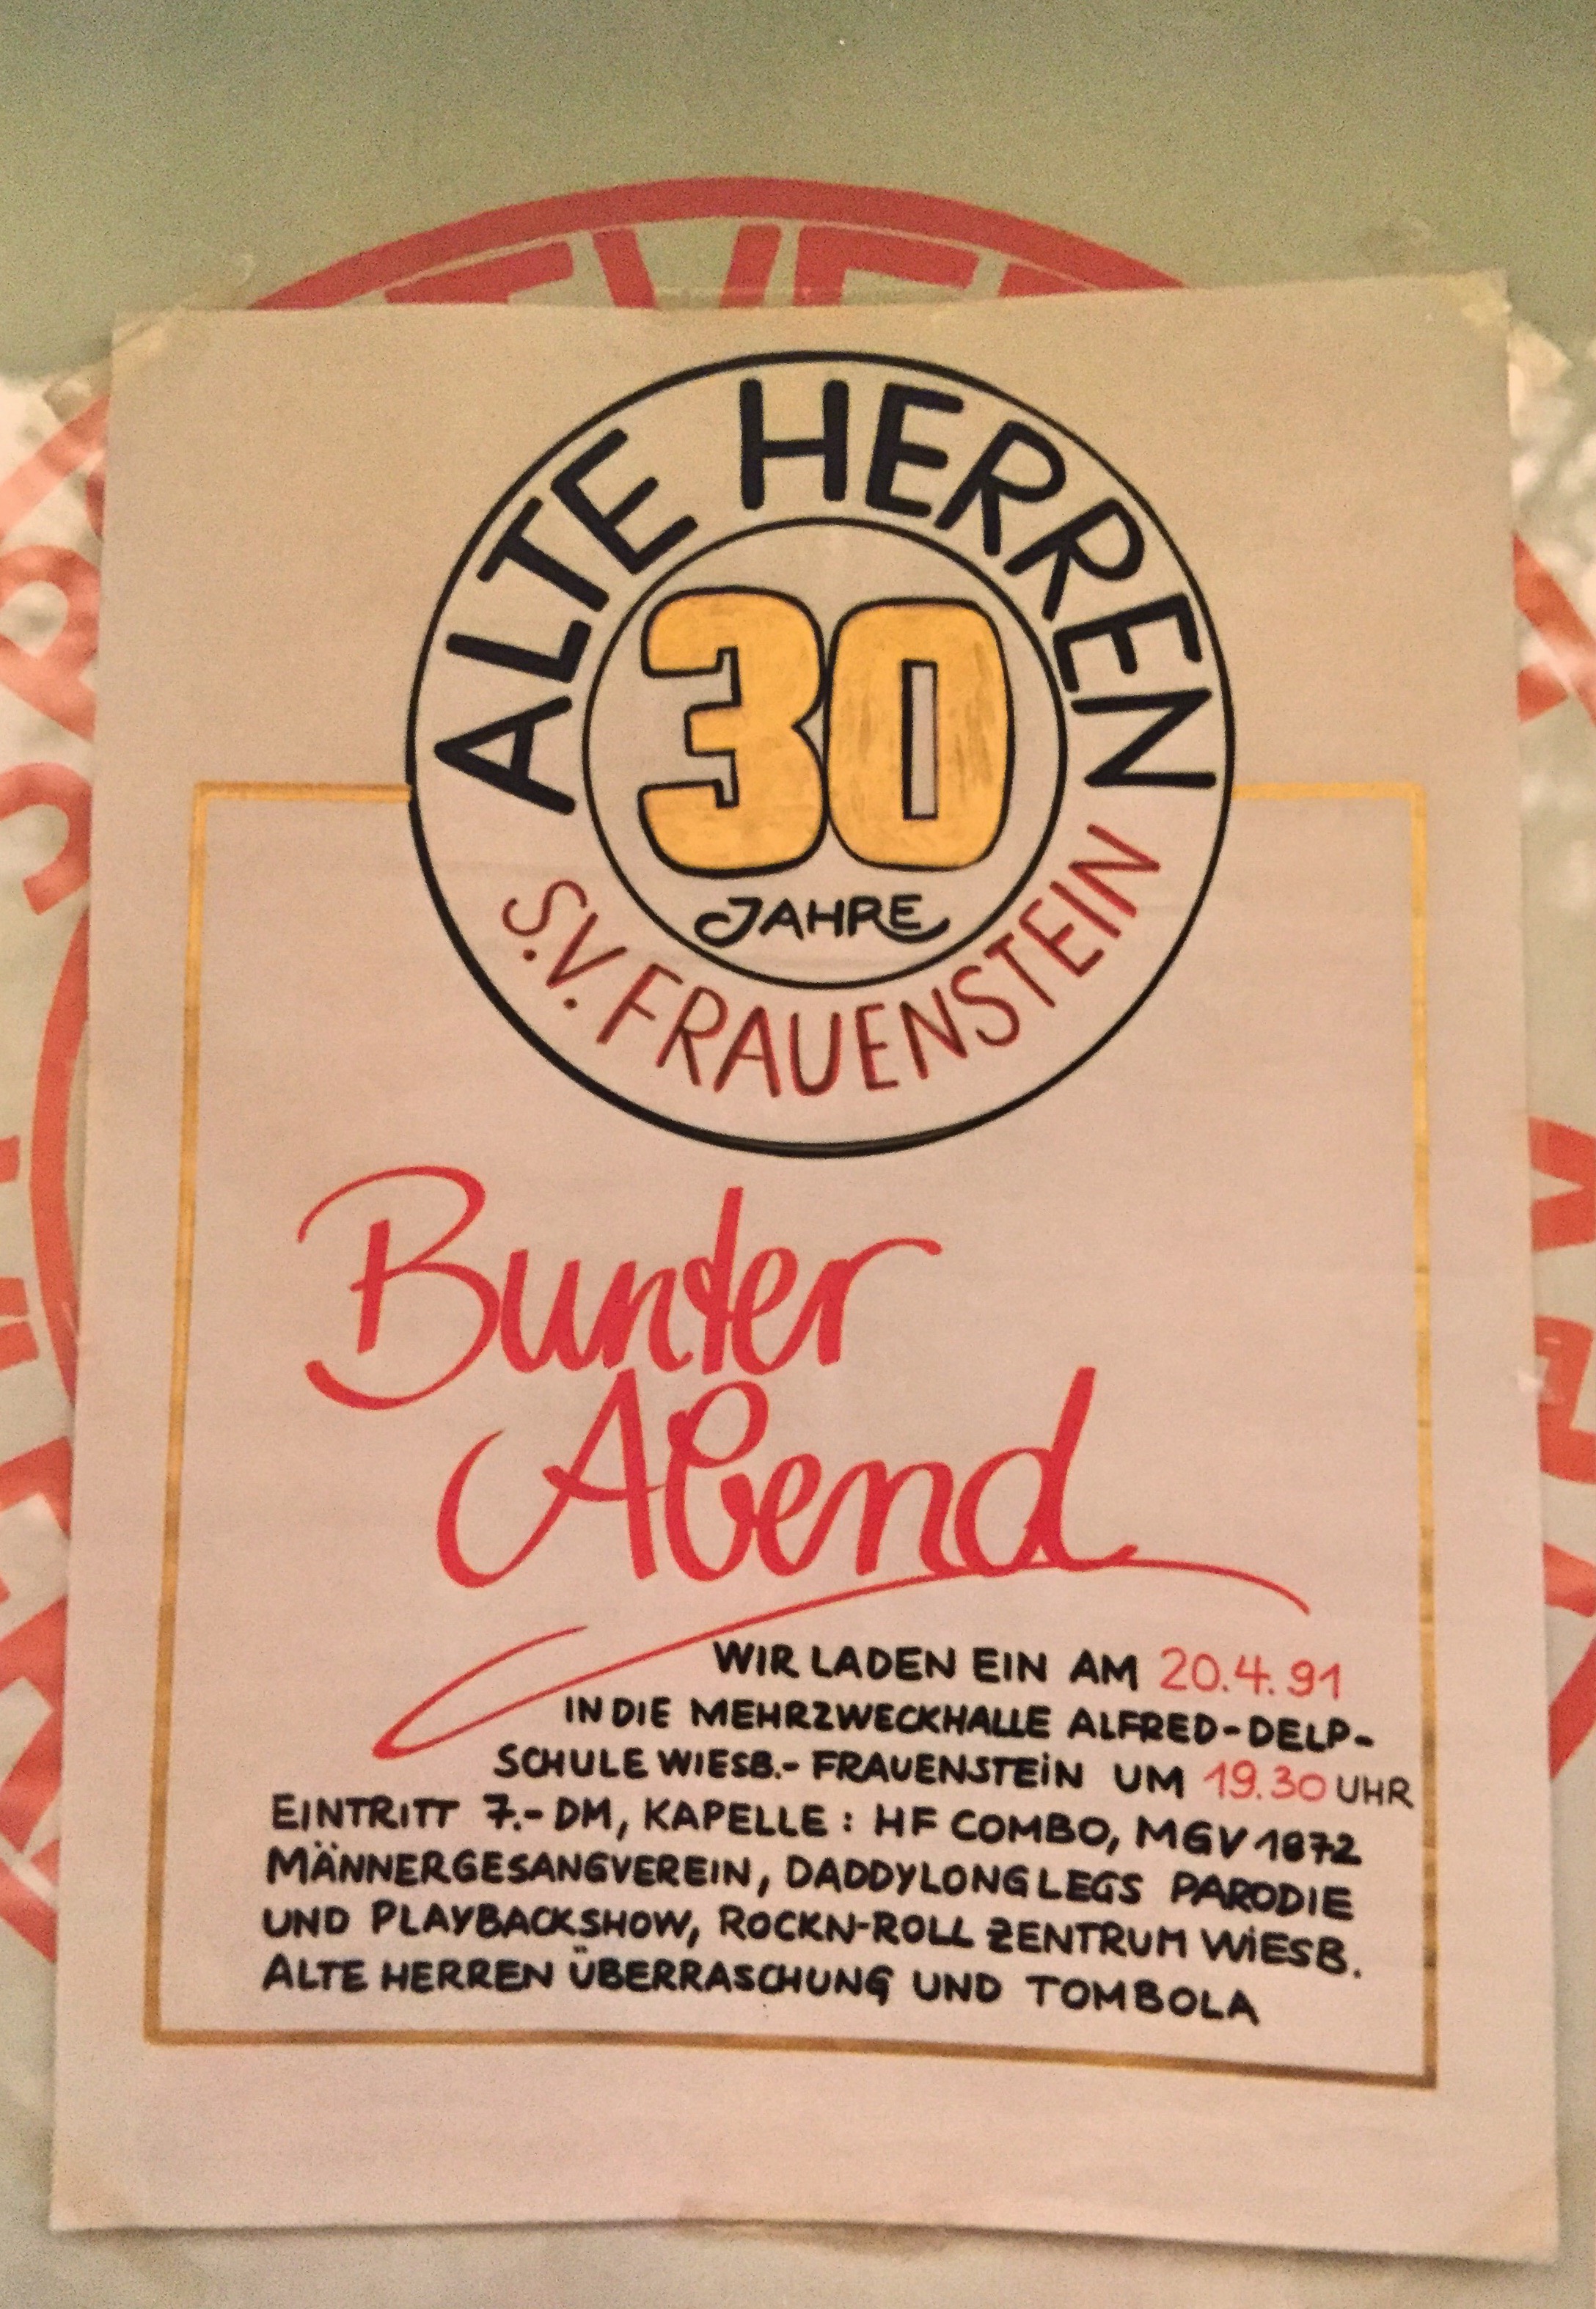 ALTE HERREN
30
JAHRE
S.V. FRAUENSTEIN
Bunter
Abend
WIR LADEN EIN AM 20.4.91
IN DIE MEHRZWECKHALLE ALFRED-DELP-
SCHULE WIESB.-FRAUENSTEIN UM 19.30 UHR
EINTRITT 7.- DM, KAPELLE: HF COMBO, MGV 1872
MÄNNERGESANGVEREIN, DADDYLONGLEGS PARODIE
UND PLAYBACKSHOW, ROCKN-ROLL ZENTRUM WIESB.
ALTE HERREN ÜBERRASCHUNG UND TOMBOLA